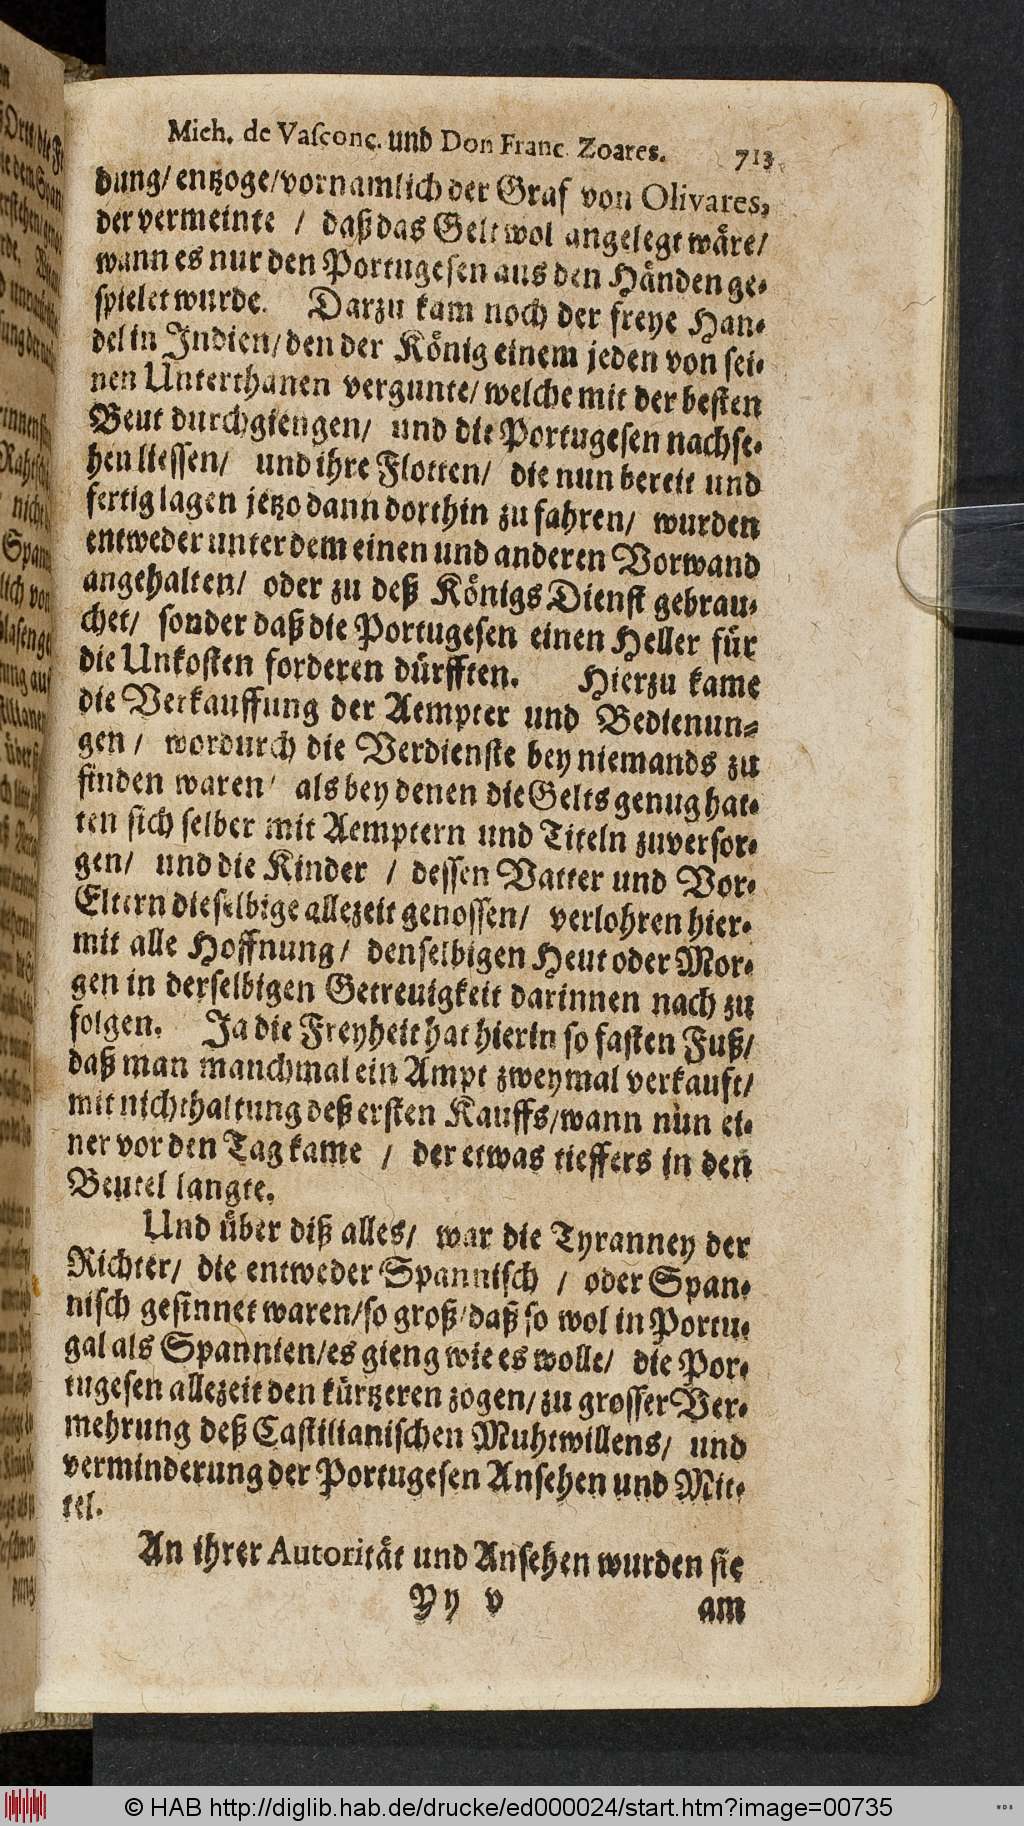 Mich. de Vaſconc. und Don Franc. Zoares. 713
dung/ entzoge/ vornamlich der Graf von Olivares,
der vermeinte / daß das Gelt wol angelegt wäre/
wann es nur den Portugesen aus den Händen ge-
spielet wurde. Darzu kam noch der freye Han-
del in Indien/ den der König einem jeden von sei-
nen Unterthanen vergunte/ welche mit der besten
Beut durchgiengen/ und die Portugesen nachse-
hen liessen/ und ihre Flotten/ die nun bereit und
fertig lagen jetzo dann dorthin zu fahren/ wurden
entweder unter dem einen und anderen Vorwand
angehalten/ oder zu deß Königs Dienst gebrau-
chet/ sonder daß die Portugesen einen Heller für
die Unkosten forderen dürfften. Hierzu kame
die Verkauffung der Aempter und Bedienun-
gen/ wordurch die Verdienste bey niemands zu
finden waren/ als bey denen die Gelts genug hat-
ten sich selber mit Aemptern und Titeln zuversor-
gen/ und die Kinder / dessen Vatter und Vor-
Eltern dieselbige allezeit genossen/ verlohren hier-
mit alle Hoffnung/ denselbigen Heut oder Mor-
gen in derselbigen Getreuigkeit darinnen nach zu
folgen. Ja die Freyheit hat hierin so fasten Fuß/
daß man manchmal ein Ampt zweymal verkauft/
mit nichthaltung deß ersten Kauffs/ wann nun ei-
ner vor den Tag kame / der etwas tieffers in den
Beutel langte.
Und über diß alles/ war die Tyranney der
Richter/ die entweder Spannisch / oder Span-
nisch gesinnet waren/ so groß/ daß so wol in Portu-
gal als Spannien/ es gieng wie es wolle/ die Por-
tugesen allezeit den kürtzeren zogen/ zu grosser Ver-
mehrung deß Castilianischen Muhtwillens/ und
verminderung der Portugesen Ansehen und Mit-
tel.
An ihrer Autorität und Ansehen wurden sie
Yy v am
© HAB http://diglib.hab.de/drucke/ed000024/start.htm?image=00735